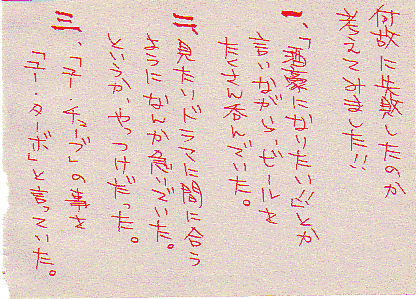 何故に失敗したのか
考えてみました!!
一、「酒豪になりたい!!」とか
言いながら、ビールを
たくさん呑んでいた。
二、見たいドラマに間に合う
ようになんか急いでいた。
というか、やっつけだった。
三、「ユーチューブ」の事を
「ユー・ターボ」と言っていた。